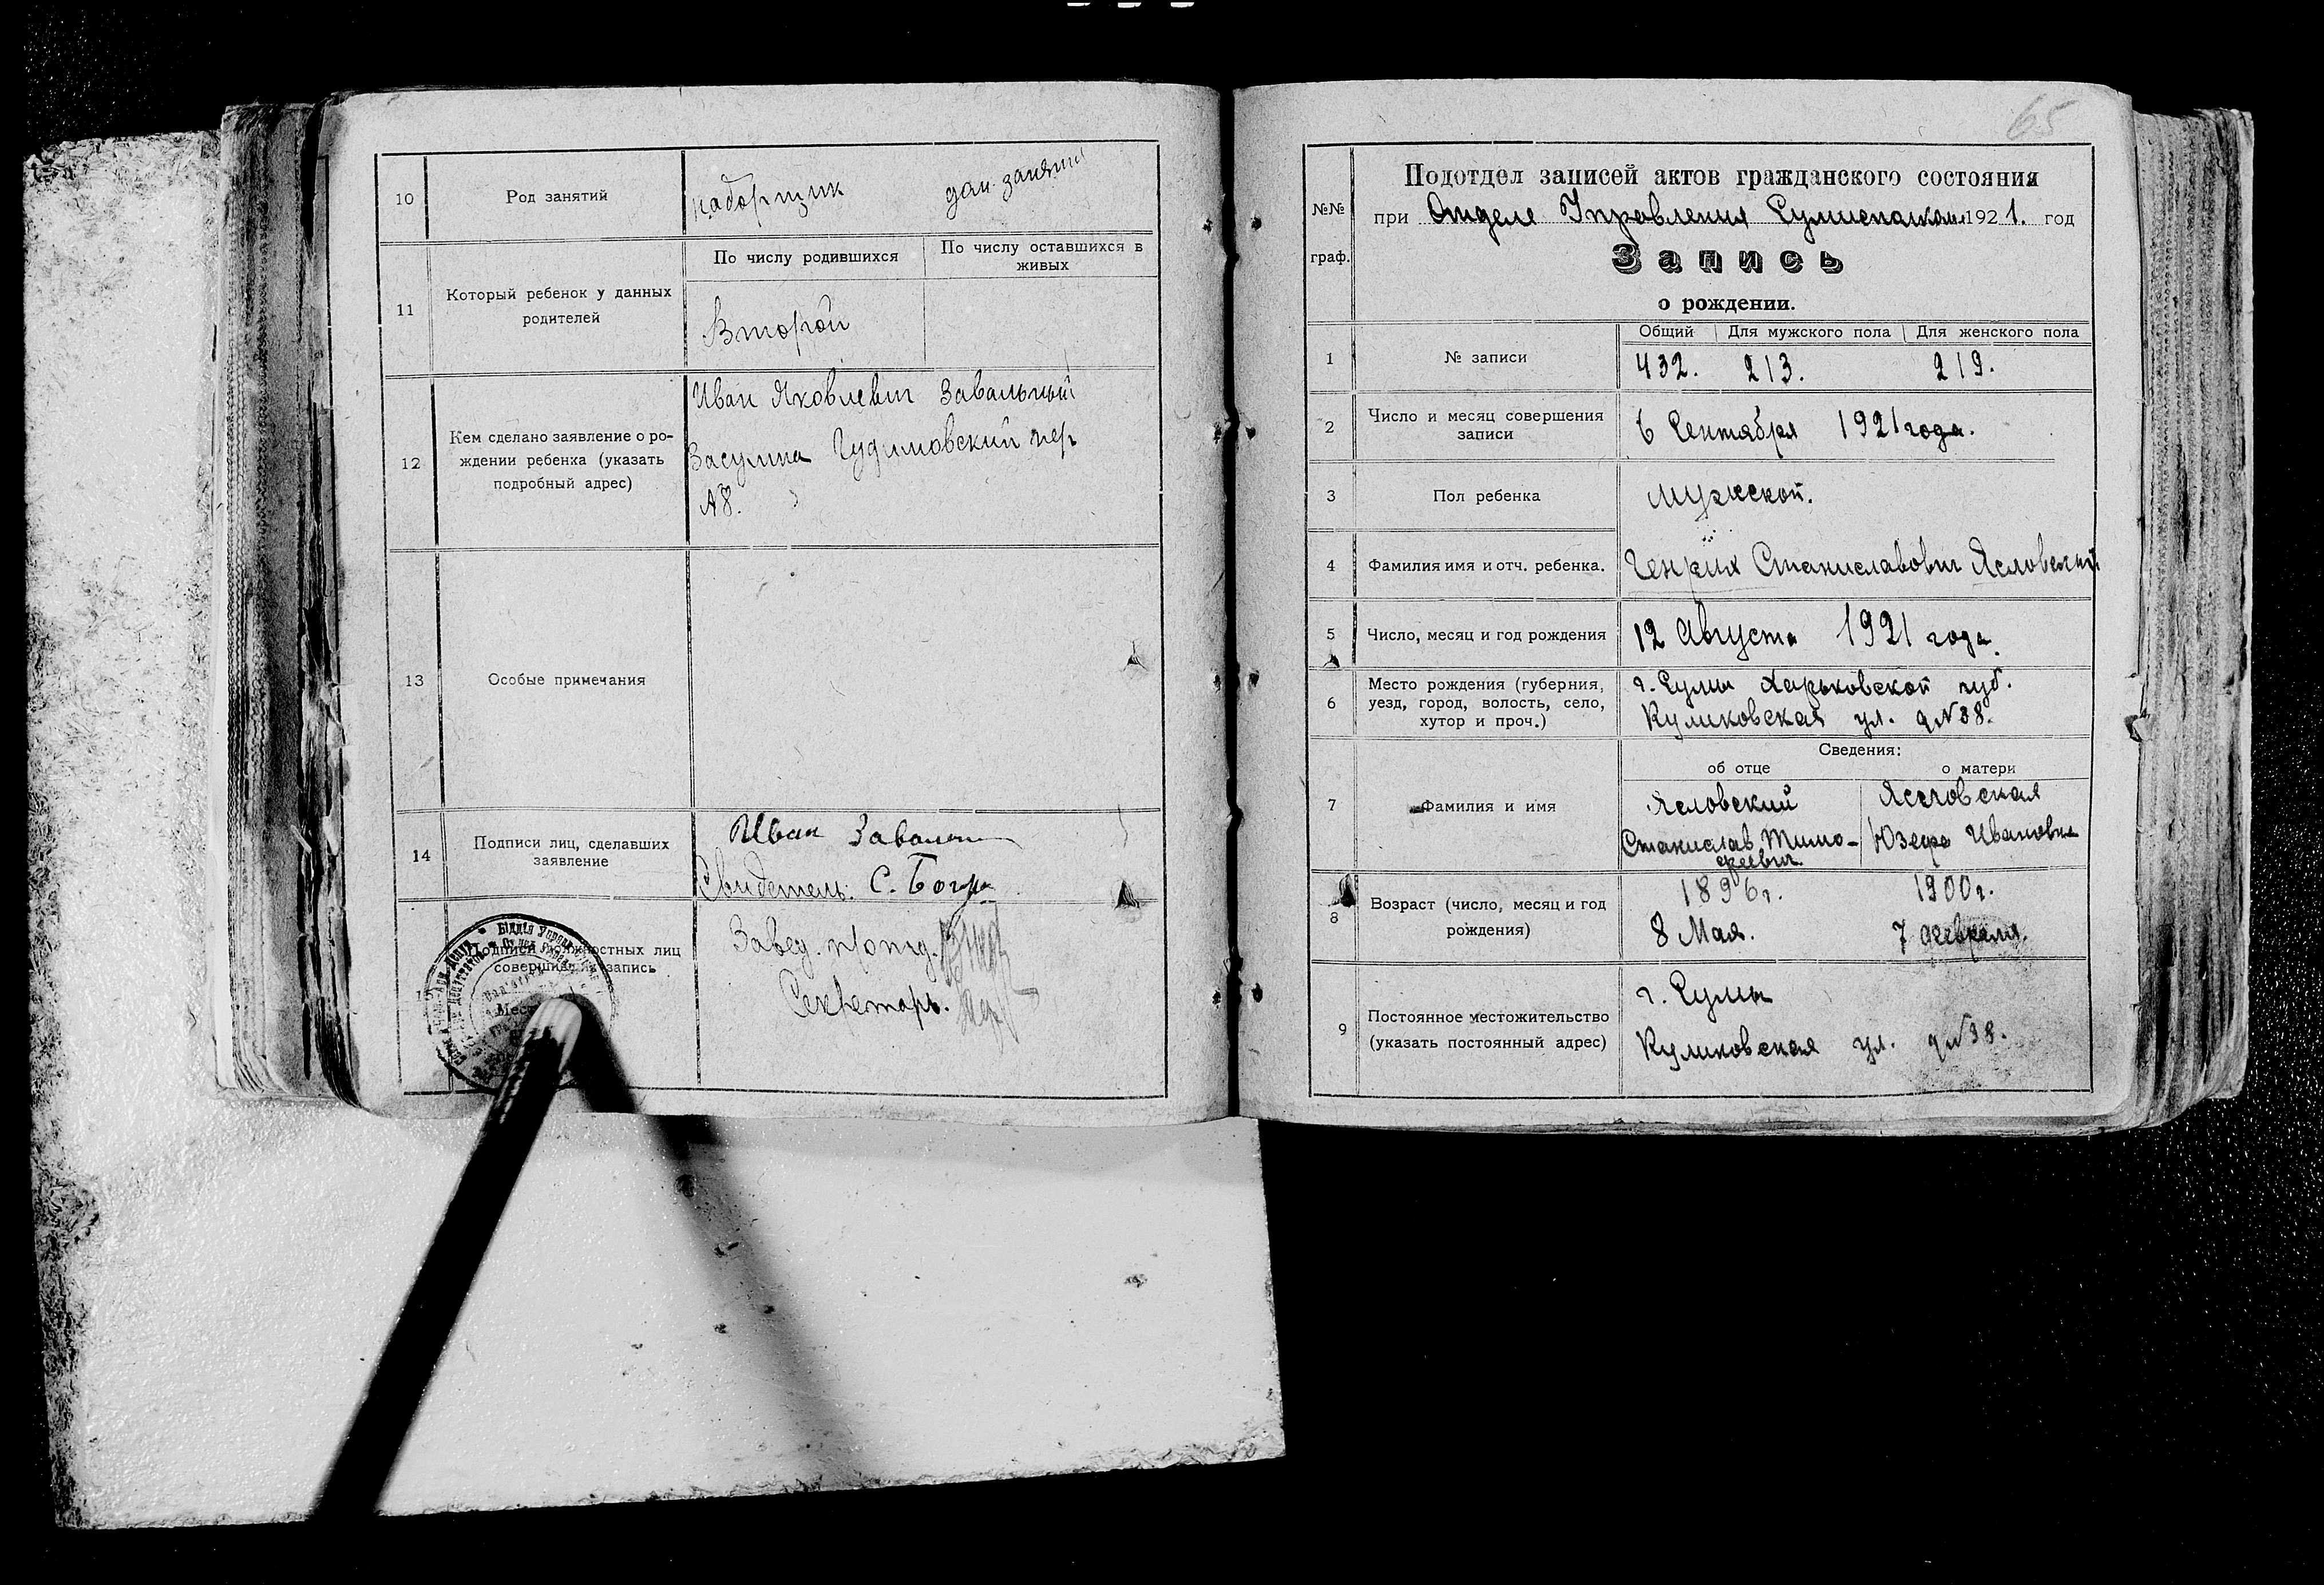 10
Род занятий
наборщик
дом. занятия
11
Который ребенок у данных
родителей
По числу родившихся
По числу оставшихся в
живых
Второй
12
Кем сделано заявление о ро-
ждении ребенка (указать
подробный адрес)
Иван Яковлевич Завальный
Засулка Гудимовский пер
№8.
13
Особые примечания
14
Подписи лиц, сделавших
заявление
Иван
Свидетель: С.
15
Подписи должностных лиц
совершивших запись
Завед. п/отд.
Секретарь.
65
№№
граф.
Подотдел записей актов гражданского состояния
при Отделе Управления 1921. год
Запись
о рождении.
1
№ записи
Общий
Для мужского пола
Для женского пола
432. 213. 219.
2
Число и месяц совершения
записи
6 Сентября 1921 года.
3
Пол ребенка
Мужской.
4
Фамилия имя и отч. ребенка.
Генрих Станиславович Ясловский
5
Число, месяц и год рождения
12 Августа 1921 года.
6
Место рождения (губерния,
уезд, город, волость, село,
хутор и проч.)
г. Сумы Харьковской губ.
Куликовская ул. д №38.
7
Фамилия и имя
Сведения:
об отце
о матери
Ясловский
Станислав Тимо-
феевич
Ясловская
Юзефа Ивановна
8
Возраст (число, месяц и год
рождения)
1896г.
8 Мая.
1900г.
7 февраля.
9
Постоянное местожительство
(указать постоянный адрес)
г. Сумы
Куликовская ул. д №38.